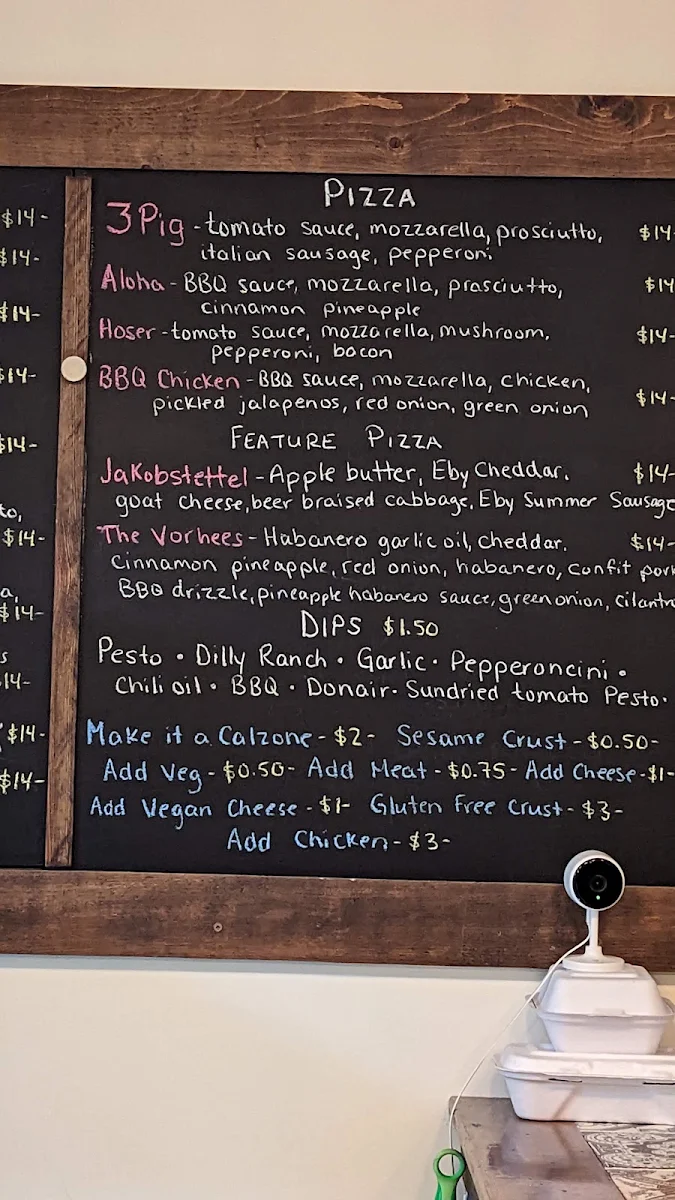 $14-
$14-
$14-
$14-
$14-
to,
$14-
a,
$14-
s
14-
$14-
$14-
PIZZA
3Pig - tomato sauce, mozzarella, prosciutto, $14-
italian sausage, pepperoni
Aloha - BBQ sauce, mozzarella, prasciutto, $14
cinnamon pineapple
Hoser - tomato sauce, mozzarella, mushroom, $14-
pepperoni, bacon
BBQ Chicken - BBQ sauce, mozzarella, chicken, $14-
pickled jalapenos, red onion, green onion
FEATURE PIZZA
Jakobstettel - Apple butter, Eby Cheddar, $14-
goat cheese, beer braised cabbage, Eby Summer Sausage
The Vorhees - Habanero garlic oil, cheddar, $14-
Cinnamon pineapple, red onion, habanero, confit pork
BBQ drizzle, pineapple habanero sauce, green onion, cilantro
DIPS $1.50
Pesto • Dilly Ranch • Garlic • Pepperoncini •
Chili oil • BBQ • Donair • Sundried tomato Pesto •
Make it a Calzone - $2- Sesame Crust - $0.50-
Add Veg - $0.50- Add Meat - $0.75- Add Cheese - $1-
Add Vegan Cheese - $1- Gluten Free Crust - $3-
Add Chicken - $3-